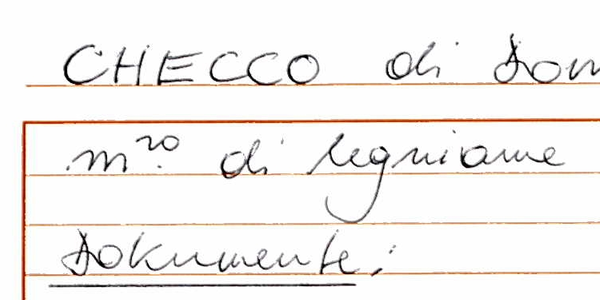 CHECCO di Dom
m.ro di legniame
Dokumente: